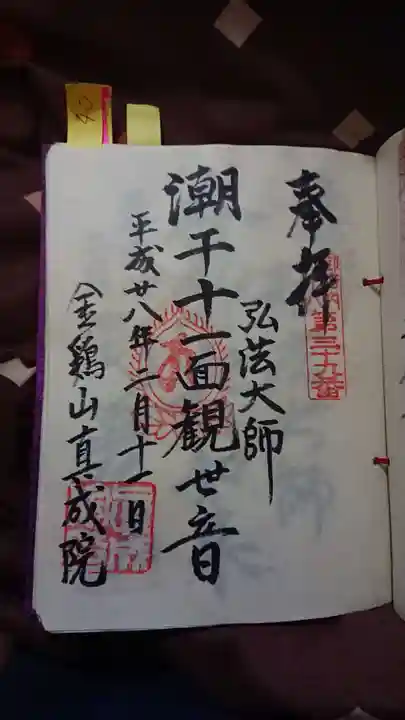 奉拝
第三十九番
弘法大師
潮干十一面観世音
平成廿八年二月十一日
金鶏山真成院